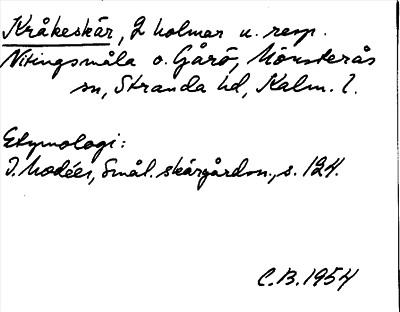 Kråkeskär, 2 holmar u. resp.
Nitingsmåla o. Gårö, Mönsterås
sn, Stranda hd, Kalm. l.
Etymologi:
I. Modéer, Smål. skärgårdsn., s. 124.
C.B. 1954